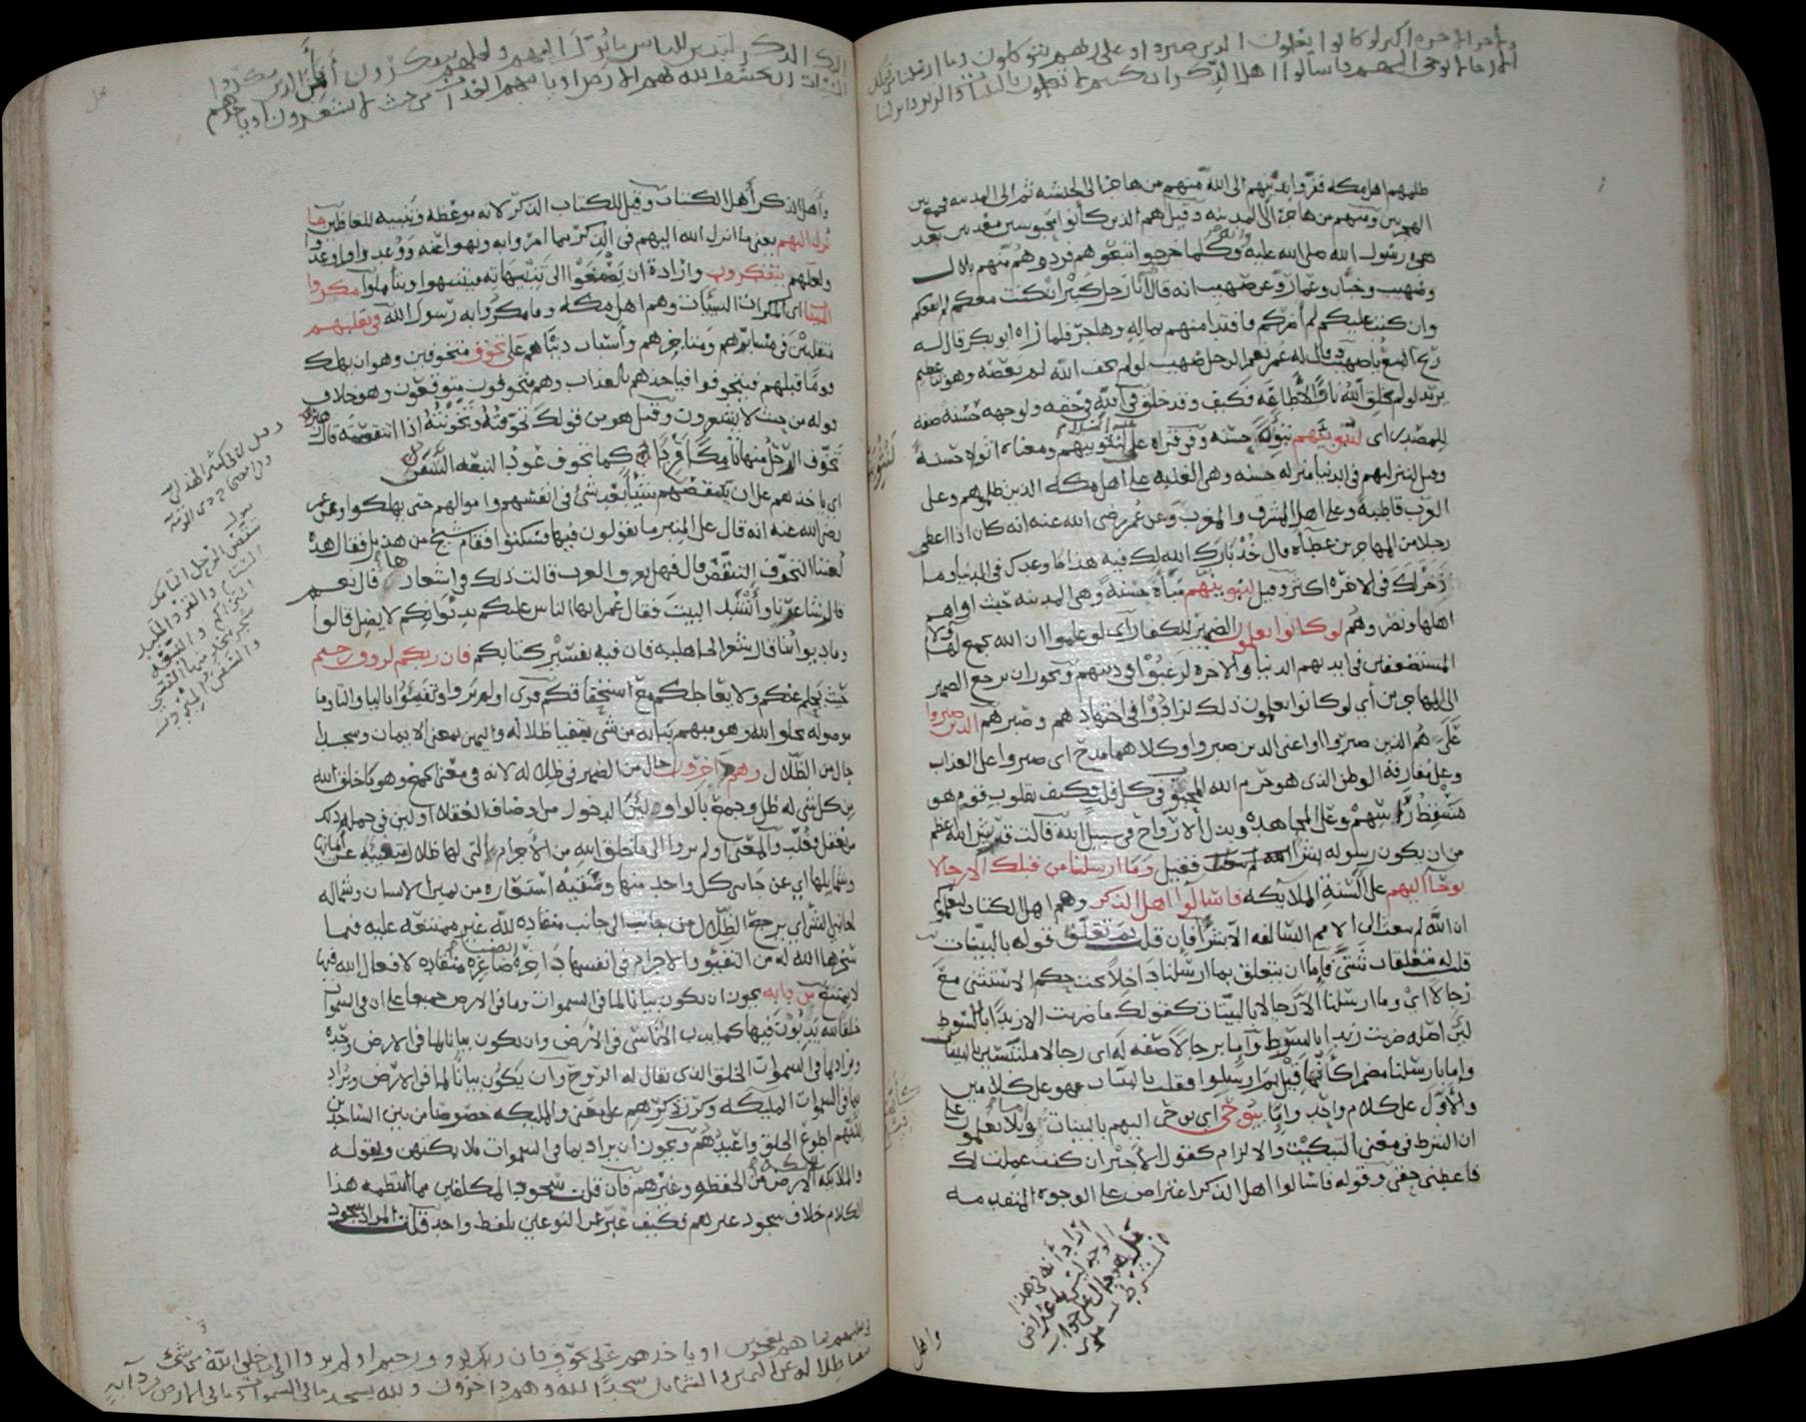 ولأجر الآخرة أكبر لو كانوا يعلمون الذين صبروا وعلى ربهم يتوكلون وما أرسلنا من قبلك
إلا رجالا نوحي إليهم فاسألوا أهل الذكر إن كنتم لا تعلمون بالبينات والزبر وأنزلنا
ظلمهم اهل مكه ففروا بدينهم الى الله منهم من هاجر الى الحبشه ثم الى المدينه فجمع بين
الهجرتين ومنهم من هاجر الى المدينه وقيل هم الذين كانوا محبوسين معذبين بعد
هجرة رسول الله صلى الله عليه وكلما خرجوا تبعوهم فردوهم منهم بلال
وصهيب وخباب وعمار وعن صهيب انه قال انا رجل كبير ان كنت معكم لم انفعكم
وان كنت عليكم لم اضركم فافتدا منهم بماله وهاجر فلما راه ابو بكر قال له
ربح البيع يا صهيب وقال له عمر نعم الرجل صهيب لو لم يخف الله لم يعصه وهو ثنا عظيم
يريد لو لم يخلق الله نارا لأطاعه فكيف وقد خلق في الله في حقه ولوجهه حسنة صفه
للمصدر اي لنبوئنهم تبوئة حسنه وفي قراه علي لنثوينهم ومعناه اثواه حسنة
وقيل لننزلنهم في الدنيا منزله حسنه وهي الغلبه على اهل مكه الذين ظلموهم وعلى
العرب قاطبة وعلى اهل المشرق والمغرب وعن عمر رضي الله عنه انه كان اذا اعطى
رجلا من المهاجرين عطاه قال خذ بارك الله لك فيه هذا ما وعدك في الدنيا وما
ذخر لك في الاخره اكثر وقيل لنبوئنهم مباءة حسنة وهي المدينه حيث اواهم
اهلها ونصروهم لو كانوا يعلمون الضمير للكفار اي لو علموا ان الله يجمع لهولا
المستضعفين في ايديهم الدنيا والاخره لرغبوا في دينهم ويجوز ان يرجع الضمير
الى المهاجرين اي لو كانوا يعلمون ذلك لزادوا في اجتهادهم وصبرهم الذين صبروا
على هم الذين صبروا او اعني الذين صبروا وكلاهما مدح اي صبروا على العذاب
وعلى مفارقة الوطن الذي هو حرم الله المحبوب في كل قلب فكيف بقلوب قوم هو
مسقط رؤسهم وعلى المجاهده وبذل الارواح في سبيل الله قالت قريش الله اعظم
من ان يكون رسوله بشرا فقيل وما ارسلنا من قبلك الا رجالا
يوحا اليهم على السنة الملايكه فاسالوا اهل الذكر وهم اهل الكتاب ليعلموكم
ان الله لم يبعث الى الامم السالفه الا بشرا فإن قلت بم تعلق قوله بالبينات
قلت له متعلقات شتى فإما ان يتعلق بما ارسلنا داخلا تحت حكم الاستثنى مع
رجالا اي وما ارسلنا الا رجالا بالبينات كقولك ما ضربت الا زيدا بالسوط
لئن اصله ضربت زيدا بالسوط واما برجالا صفه له اي رجالا ملتبسين بالبينات
واما بارسلنا مضمرا كأنما قيل بم ارسلوا فقلت بالبينات فهو على كلامين
والأول على كلام واحد وإما بيوحى اي يوحى اليهم بالبينات وإما بلا يعلمون على
ان الشرط في معنى التبكيت والالزام كقول الأجير ان كنت عملت لك
فاعطني حقي وقوله فاسالوا اهل الذكر اعتراض على الوجوه المتقدمه
اراد أنه في هذا
الوجه ليس باعتراض
بل هو دال على جواب
الشرط
واهل
إليك الذكر لتبين للناس ما نزل إليهم ولعلهم يتفكرون أفأمن الذين مكروا
السيئات أن يخسف الله بهم الأرض أو يأتيهم العذاب من حيث لا يشعرون أو يأخذهم
وأهل الذكر أهل الكتاب وقيل للكتاب الذكر لانه موعظه وتنبيه للغافلين ما
نزل اليهم يعني ما انزل الله اليهم في الذكر مما امروا به ونهوا عنه ووعدوا واوعدوا
ولعلهم يتفكرون وارادة ان يصغوا الى تنبيهاته فيتنبهوا ويتأملوا مكروا
السيئات اي المكرات السيئات وهم اهل مكه وما مكروا به رسول الله في تقلبهم
متقلبين في مسايرهم ومتاجرهم وأسباب دنياهم على تخوف متخوفين وهو ان يهلك
قوما قبلهم فيتخوفوا فياخذهم بالعذاب وهم متخوفون متوقعون وهو خلاف
قوله من حيث لا يشعرون وقيل هو من قولك تخوفته وتخونته اذا انتقصته قال زهير
تخوف الرحل منها تامكا قردا كما تخوف عود النبعه السفن
اي ياخذهم على ان يتنقصهم شيئا بعد شئ في انفسهم واموالهم حتى يهلكوا وعن عمر
رضي الله عنه انه قال على المنبر ما تقولون فيها فسكتوا فقام شيخ من هذيل فقال هذه
لغتنا التخوف التنقص قال فهل تعرف العرب ذلك في اشعارها قال نعم
قال شاعرنا وأنشد البيت فقال عمر ايها الناس عليكم بديوانكم لا يضل قالوا
وما ديواننا قال شعر الجاهليه فان فيه تفسير كتابكم فان ربكم لرووف رحيم
حيث يحلم عنكم ولا يعاجلكم مع استحقاقكم قرى اولم يروا وتتفيؤا باليا والتا وما
موصوله بخلق الله وهو مبهم بيانه من شي يتفيا ظلاله واليمين بمعنى الايمان وسجدا
حال من الظلال وهم داخرون حال من الضمير في ظلاله لانه في معنى الجمع وهو ما خلق الله
من كل شي له ظل وجمع بالواو لئن الدخور من اوصاف العقلاء او لئن في جملة ذلك
من يعقل فغلب والمعنى اولم يروا الى ما خلق الله من الأجرام التي لها ظلال متفيئه عن أيمانها
وشمايلها اي عن جانبي كل واحد منها وشقيه استعاره من يمين الانسان وشماله
لجانبي الشي اي يرجع الظلال من جانب الى جانب منقاده لله غير ممتنعه عليه فيما
سخرها الله له من التفيؤ والاجرام في انفسها داخره ايضا صاغره منقاده لافعال الله فيها
لا يمتنع من دابه يجوز ان يكون بيانا لما في السموات وما في الارض جميعا على ان في السموات
خلقا لله يدبون فيها كما يدب الأناسي في الأرض وان يكون بيانا لما في الارض وحده
ويراد بما في السموات الخلق الذي يقال له الروح وأن يكون بيانا لما في الأرض ويراد
بما في السموات المليكه وكرر ذكرهم على معنى والمليكه خصوصا من بين الساجدين
لأنهم اطوع الخلق واعبدهم ويجوز ان يراد بما في السموات ملايكتهن وبقوله
والملايكه ملايكة الارض من الحفظه وغيرهم فان قلت سجود المكلفين مما انتظمه هذا
الكلام خلاف سجود غيرهم فكيف عبر عن النوعين بلفظ واحد قلت المراد بسجود
في تقلبهم فما هم بمعجزين او يأخذهم على تخوف فإن ربكم لرءوف رحيم اولم يروا الى ما خلق الله من شيء
يتفيأ ظلاله عن اليمين والشمائل سجدا لله وهم داخرون ولله يسجد ما في السموات وما في الارض من دابة